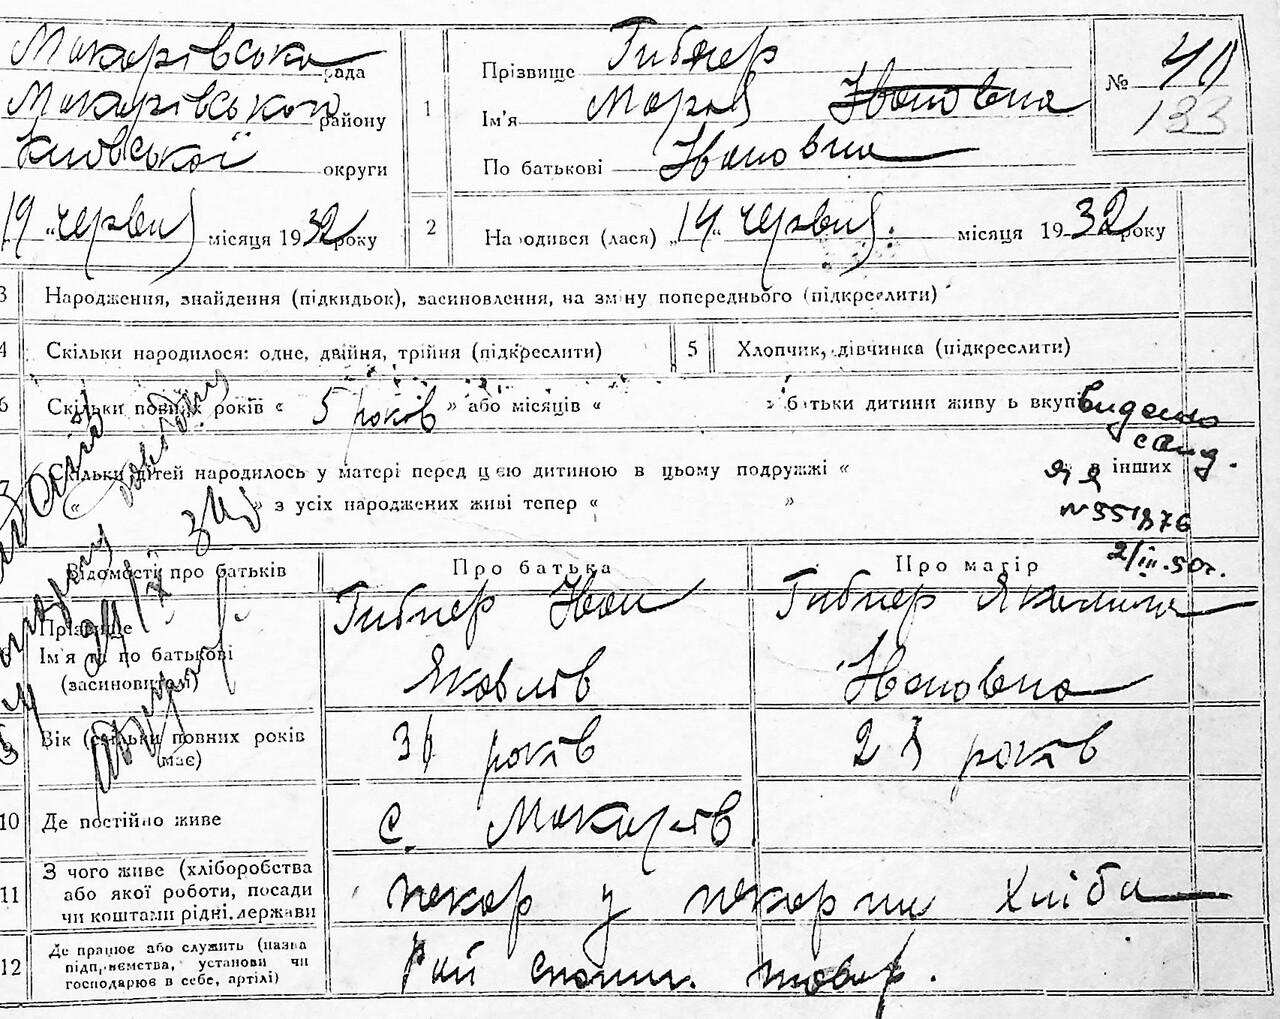 Макарівська рада
Макарівського району
Київської округи
„19" червня місяця 1932 року
1
Прізвище Гибнер
Ім'я Марія Ивановна
По батькові Ивановна
№ 40
133
2
На одився (лася) „14" червня місяця 1932 року
3 Народження, знайдення (підкидьок), засиновлення, на зміну попереднього (підкреслити)
4 Скільки народилося: одне, двійня, трійня (підкреслити)
5 Хлопчик, дівчинка (підкреслити)
6 Скільки повних років « 5 років » або місяців « » батьки дитини живуть вкупі
Видано
свид.
Скільки дітей народилось у матері перед цією дитиною в цьому подружжі « » в інших
ЯЯ
« » з усіх народжених живі тепер « »
№ 551876
2/III.50г.
Відомості про батьків
Про батька
Про матір
Прізвище
Ім'я та по батькові
(засиновителі)
Гибнер Иван
Яковлів
Гибнер Якилина
Ивановна
Вік (скільки повних років
(має)
31 років
28 років
10 Де постійно живе
с. Макарів
11 З чого живе (хліборобства
або якої роботи, посади
чи коштами рідні, держави
пекар у пекарни хліба
12 Де працює або служить (назва
підприємства, установи чи
господарює в себе, артілі)
Рай спожив. товар.